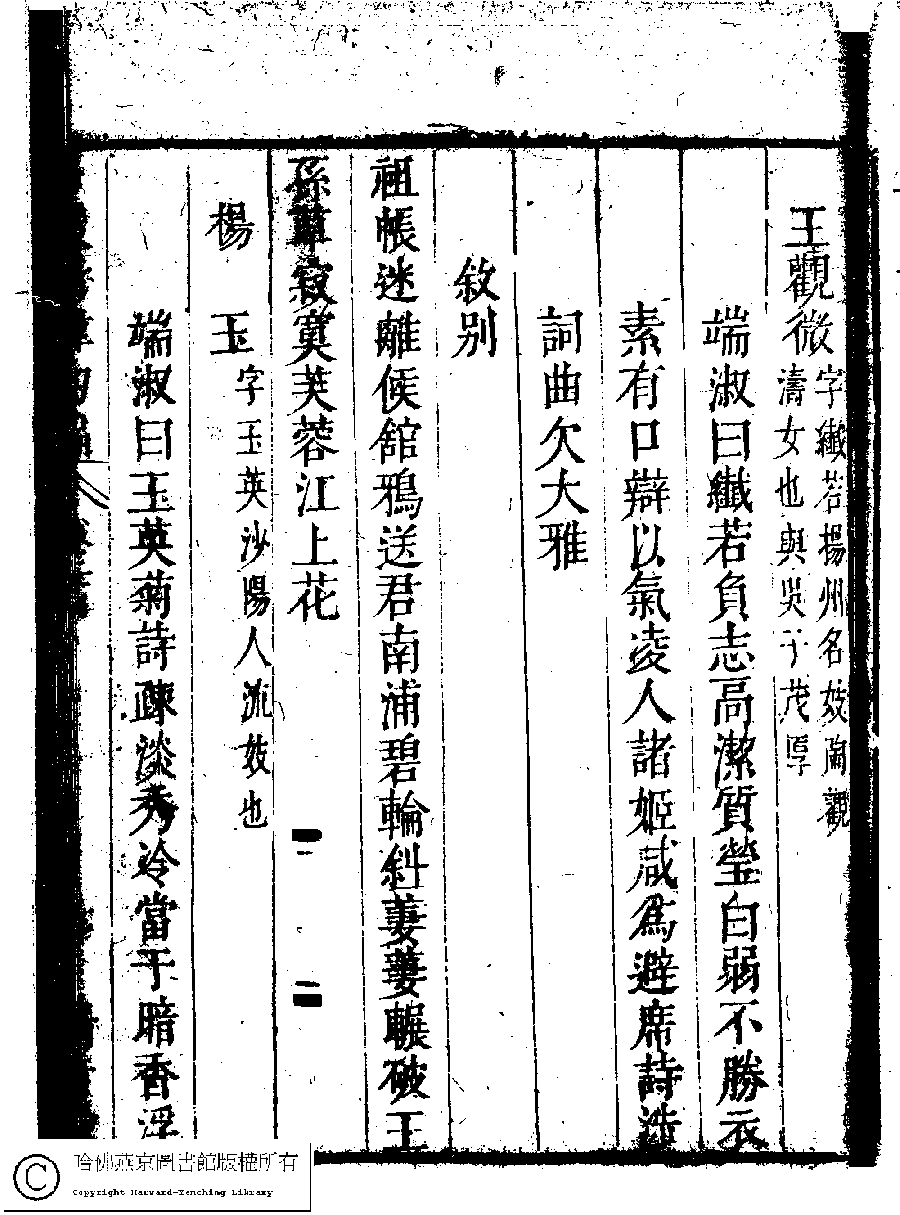 王觀微字纎若揚州名妓蘭觀
濤女也與吳于茂厚
端淑曰纎若負志高潔質瑩白弱不勝衣
素有口辯以氣凌人諸姬咸爲避席詩涉
詞曲欠大雅
敘别
祖帳迷離候舘鴉送君南浦碧輪斜萋萋輾破王
孫草寂寞芙蓉江上花
楊玉字玉英沙陽人流妓也
端淑曰玉英菊詩疎淡秀冷當于暗香浮
哈佛燕京圖書館版權所有
Copyright Harvard-Yenching Library